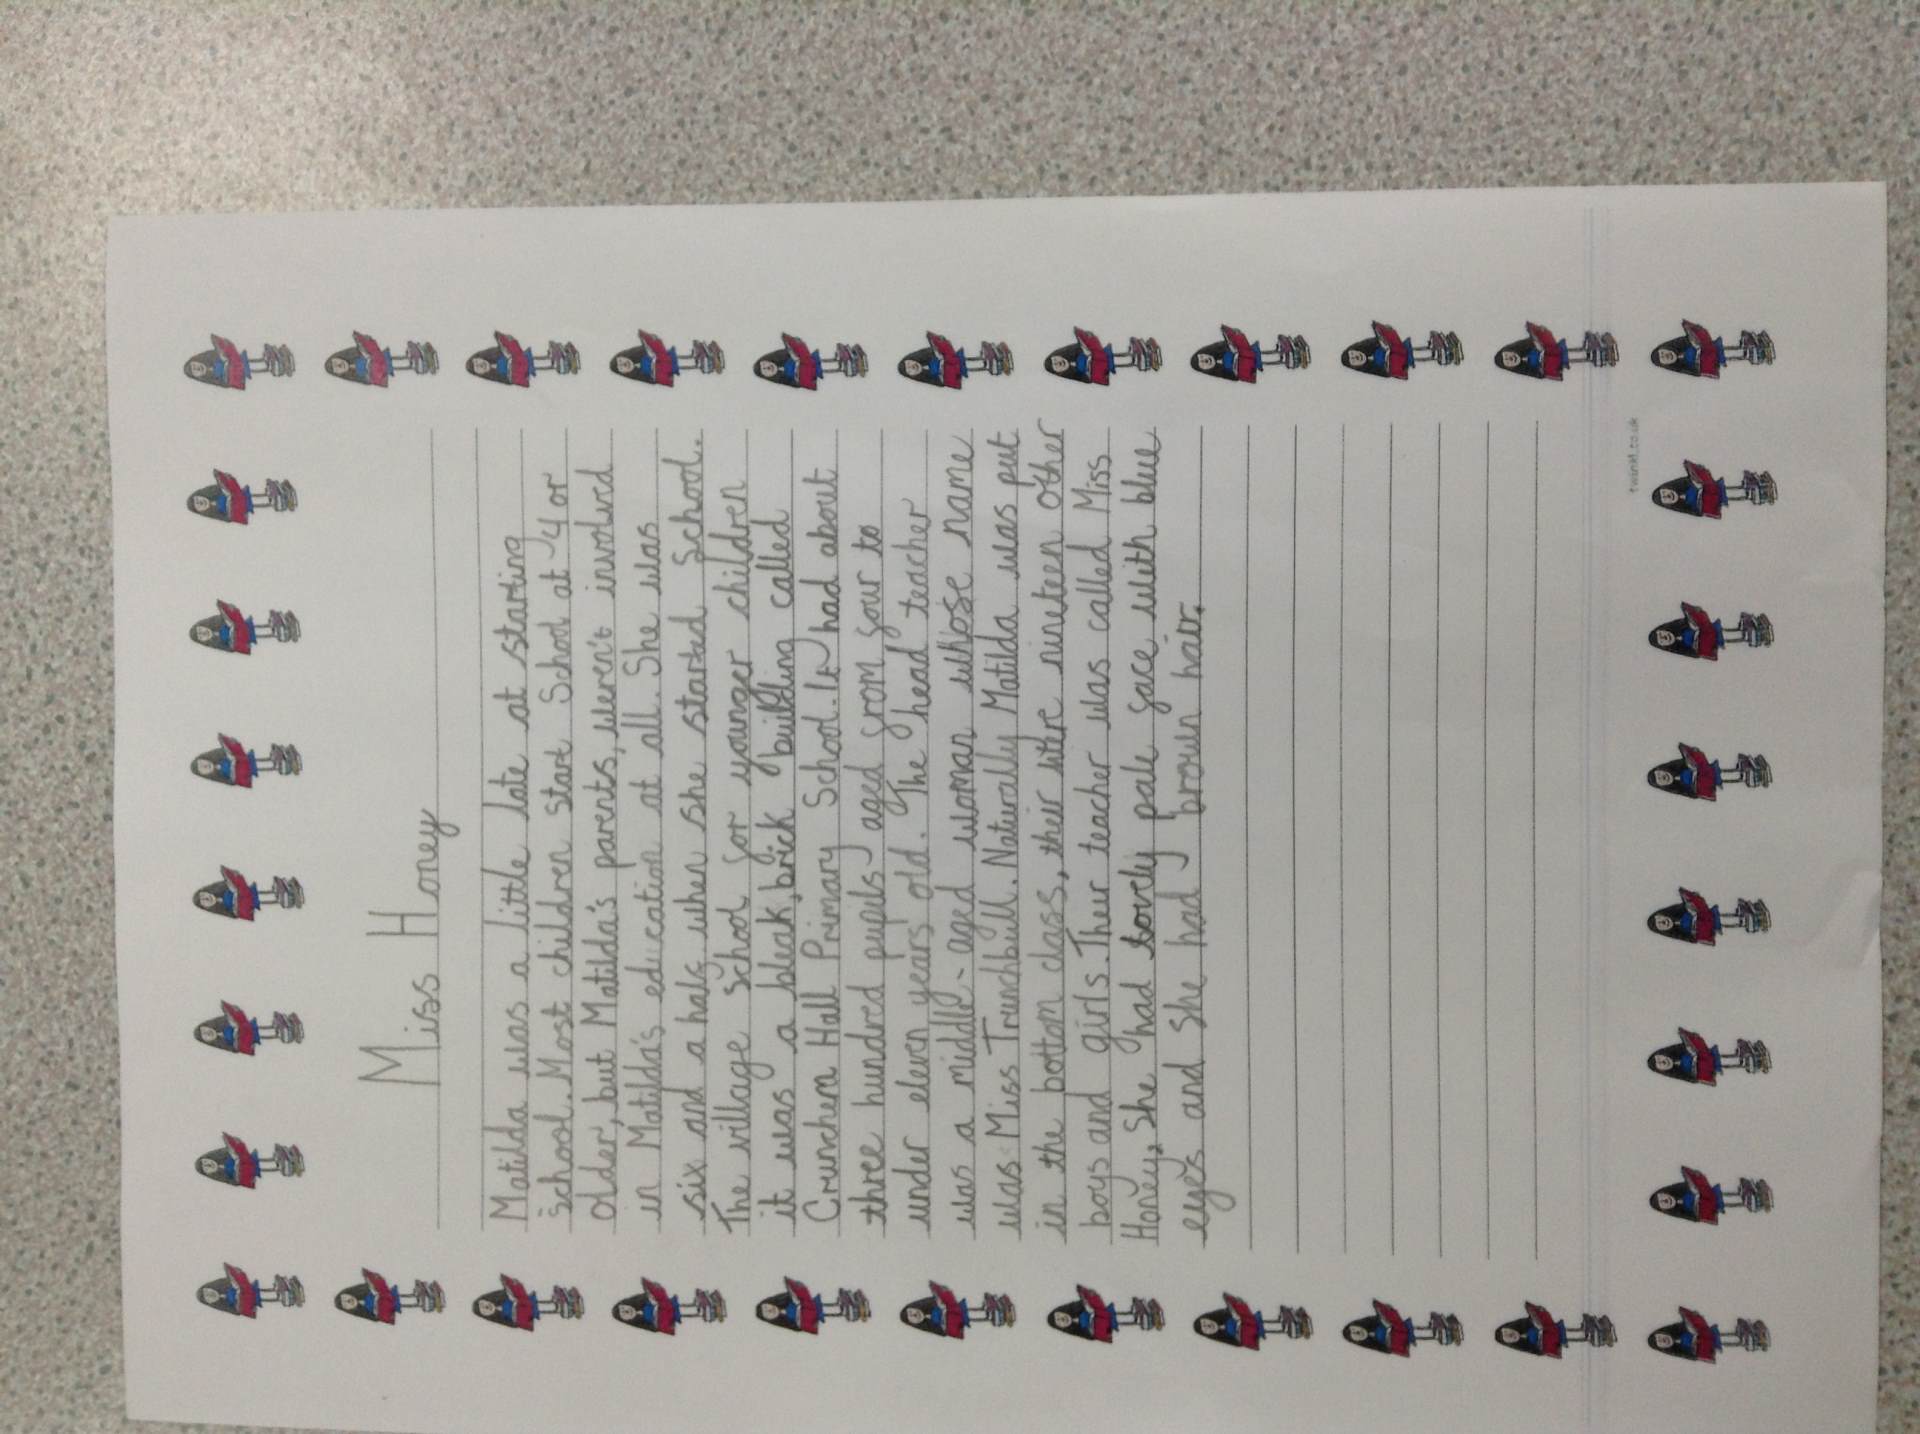 Miss Honey
Matilda was a little late at starting
School. Most children start School at 4 or
older, but Matilda's parents, weren't involved
in Matilda's education at all. She was
six and a half when she started School.
The village School for younger children
it was a bleak, brick building called
Crunchem Hall Primary School. It had about
three hundred pupils aged from four to
under eleven years old. The head teacher
was a middle-aged woman whose name
was Miss Trunchbull. Naturally Matilda was put
in the bottom class, their were nineteen other
boys and girls. Their teacher was called Miss
Honey, She had lovely pale face with blue
eyes and She had brown hair.
twinkl.co.uk